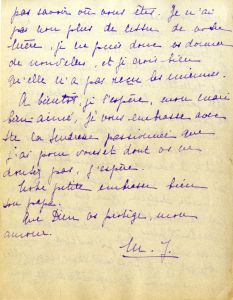 pas savoir où vous êtes. Je n'ai
pas non plus de lettre de votre
mère, je ne puis donc vs donner
de nouvelles, et je crois bien
qu'elle n'a pas reçu les miennes.
A bientôt, je l'espère, mon mari
bien aimé, je vous embrasse avec
tte la tendresse passionnée que
j'ai pour vous et dont vs ne
doutez pas, j'espère.
Votre petite embrasse bien
son papa.
Que Dieu vs protège, mon
amour.
M. J.